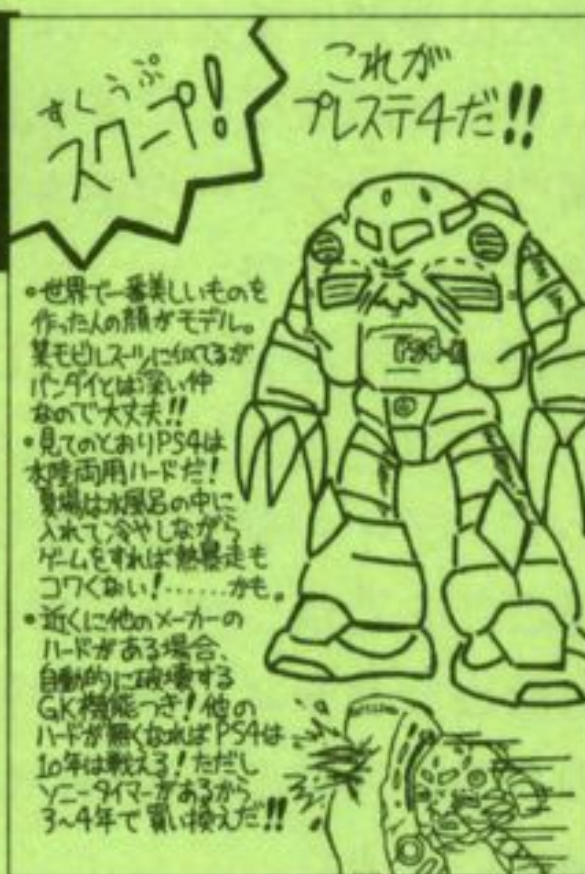 すくうぷ
スクープ!
これが
プレステ4だ!!
•世界で一番美しいものを
作った人の顔がモデル。
某モビルスーツに似てるが
バンダイとは深い仲
なので大丈夫!!
•見てのとおりPS4は
水陸両用ハードだ!
夏場は水風呂の中に
入れて冷やしながら
ゲームをすれば熱暴走も
コワくない!……かも。
•近くに他のメーカーの
ハードがある場合、
自動的に破壊する
GK機能つき!他の
ハードが無くなればPS4は
10年は戦える!ただし
ソニータイマーがあるから
3~4年で買い換えだ!!